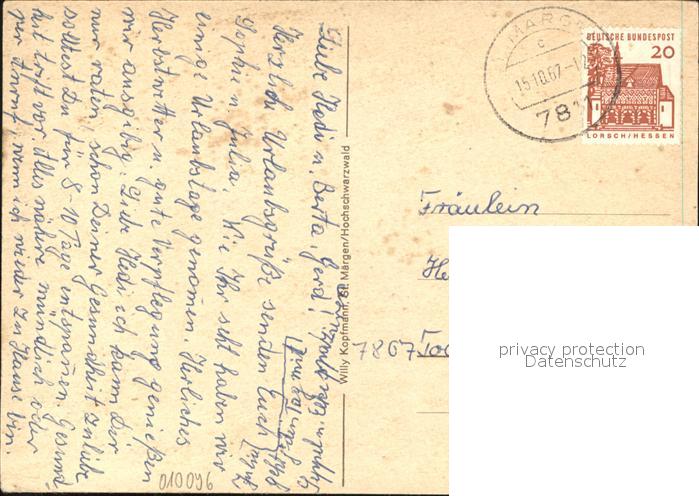 Liebe Hedi u. Berta, Gerd!
Herzlich Urlaubsgrüße senden Euch
Sophie u. Julia. Wie Ihr seht haben wir
einige Urlaubstage genomen. Herliches
Herbstwetter u. gute Verpflegung genießen
wir ausgibig. Liebe Hedi ich kann Dir
nur raten, schon Deiner Gesundheit zuliebe
solltest Du für 8-10 Tage entspannen. Gesund-
heit geht vor Alles nähere mündlich oder
per Anruf, wenn ich wieder zu Hause bin.
010096
Willy Kopfmann, St. Märgen/Hochschwarzwald
MÄRGEN
c
15.10.67-12
781
DEUTSCHE BUNDESPOST
20
LORSCH/HESSEN
Fräulein
He
7867
privacy protection
Datenschutz